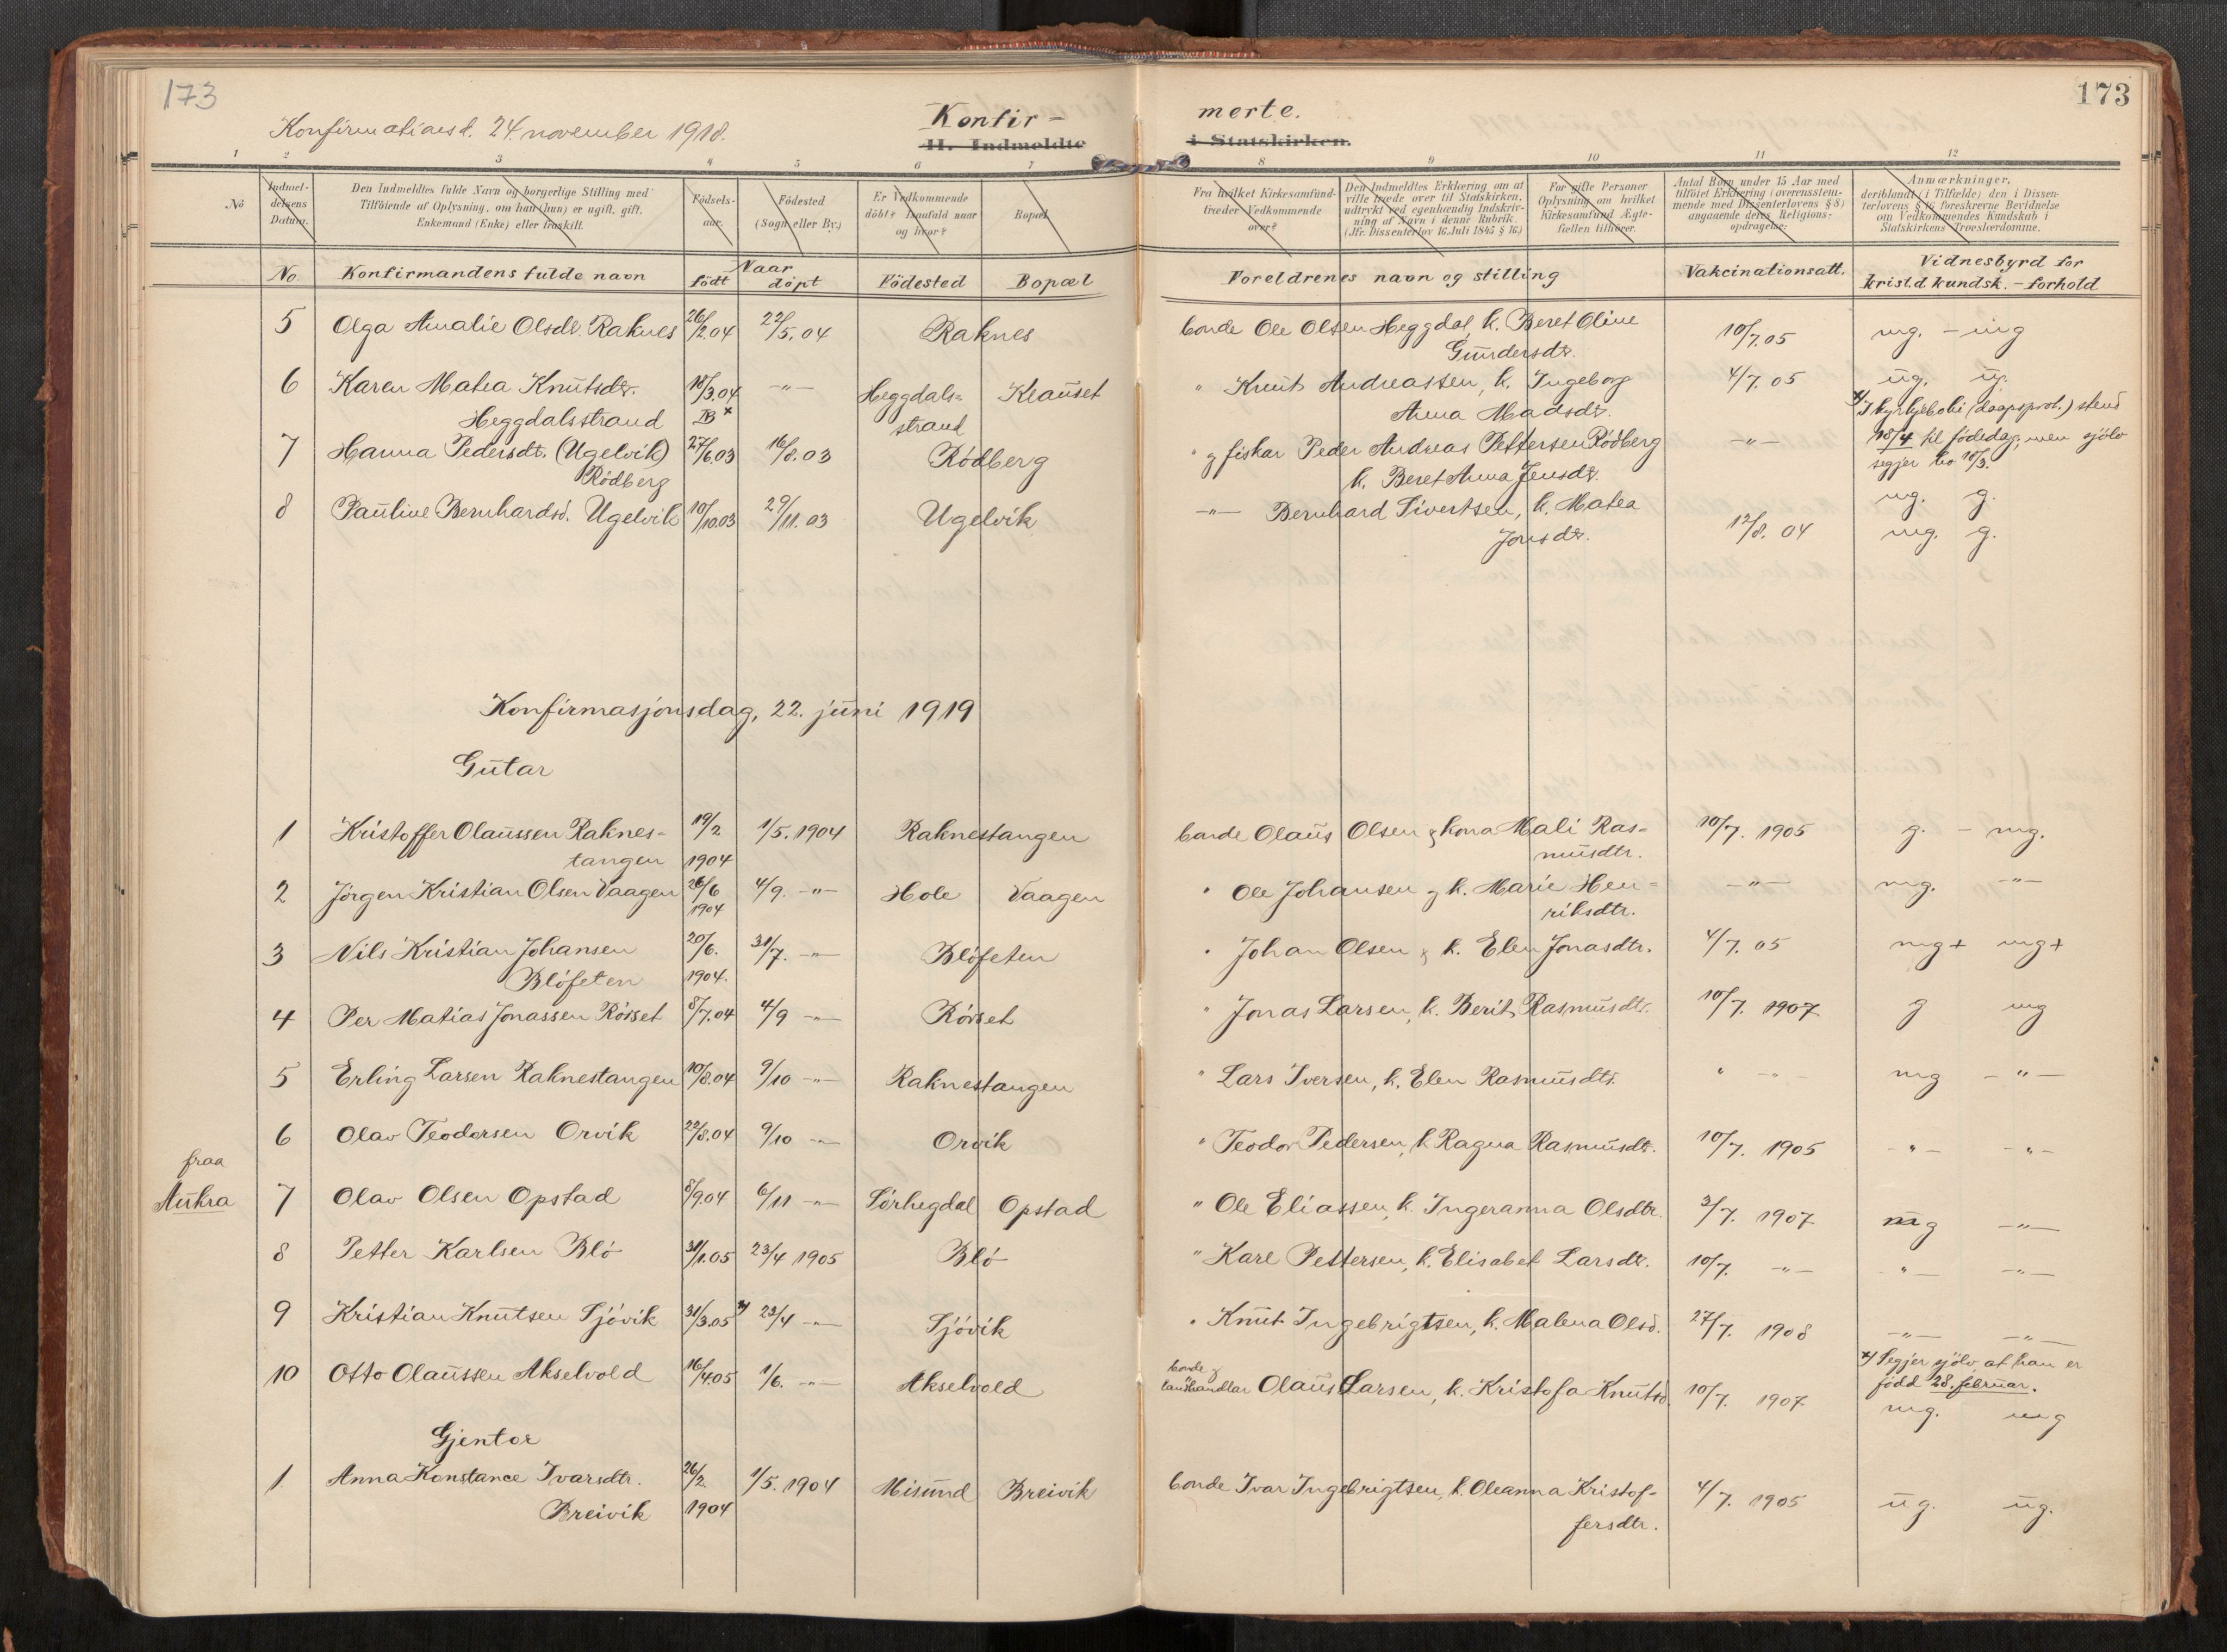 173
173
Konfirmationsd. 24 november 1918.
Konfir-
merte.
II. Indmeldte
i Statskirken.
1 2 3 4 5 6 7 8 9 10 11 12
No
Indmel-
delsens
Datum.
Den Indmeldtes fulde Navn og borgerlige Stilling med
Tilföiende af Oplysning, om han (hun) er ugift, gift,
Enkemand (Enke) eller fraskilt.
Födsels-
aar.
Födested
(Sogn eller By.)
Er Vedkommende
döbt? Isaafald naar
og hvor?
Bopæl.
Fra hvilket Kirkesamfund
træder Vedkommende
over?
Den Indmeldtes Erklæring om at
ville træde over til Statskirken,
udtrykt ved egenhændig Indskriv-
ning af Navn i denne Rubrik.
(Jfr. Dissenterlov 16 Juli 1845 § 16.)
For gifte Personer
Oplysning om hvilket
Kirkesamfund Ægte-
fællen tilhörer.
Antal Born under 15 Aar med
tilföiet Erklæring (overensstem-
mende med Dissenterlovens § 8)
angaaende deres Religions-
opdragelse:
Anmærkninger,
deriblandt (i Tilfælde) den i Dissen-
terlovens § 16 foreskrevne Bevidnelse
om Vedkommendes Kundskab i
Statskirkens Troeslærdomme.
No.
Konfirmandens fulde navn
Naar
födt döpt
Födested
Bopæl
Foreldrenes navn og stilling
Vakcinationsatt.
Vidnesbyrd for
krist.d kundsk. - forhold
5 Olga Amalie Olsdt. Raknes 26/2.04 22/5.04 Raknes bonde Ole Olsen Heggdal, k. Beret Oline 10/7.05 mg. - mg
Gundersdtr.
6 Karen Matea Knutsdtr. 18/3.04 -"- Heggdals= Klauset " Knut Andreassen, k. Ingeborg 4/7.05 ug. ug.
Heggdalsstrand strand Anna Madsdtr.
x) I kyrkjeboki (daapsprot.) stend
18/4 til födedag, men sjölv
segjer ho 18/3.
7 Hanna Pedersdt. (Ugelvik) 27/6.03 16/8.03 Rödberg " g fiskar Peder Andreas Pettersen Rödberg -"-
Rödberg k. Beret Anna Jensdtr. mg. g.
8 Pauline Bernhardsd. Ugelvik 10/10.03 29/11.03 Ugelvik -"- Bernhard Sivertsen, k. Matea 12/8.04 mg. g.
Jonsdtr.
Konfirmasjonsdag, 22. juni 1919
Gutar
1 Kristoffer Olaussen Raknes- 19/2 1/5.1904 Raknestangen bonde Olaus Olsen g kona Mali Ras= 10/7.1905 g. - mg.
tangen 1904 musdtr.
2 Jörgen Kristian Olsen Vaagen 26/6 4/9. -"- Hole Vaagen " Ole Johansen g k. Marie Hen= -"- mg. -"-
1904 riksdtr.
3 Nils Kristian Johansen 20/6. 31/7. -"- Blöfeten " Johan Olsen g k. Elen Jonasdtr. 4/7.05 mg+ mg+
Blöfeten 1904.
4 Per Matias Jonassen Rösset 8/7.04 4/9 -"- Rösset " Jonas Larsen, k. Berit Rasmusdtr. 10/7.1907 g mg
5 Erling Larsen Raknestangen 10/8.04 9/10 -"- Raknestangen " Lars Iversen, k. Elen Rasmusdtr. " -"- mg -"-
6 Olav Teodorsen Orvik 22/8.04 9/10 -"- Orvik " Teodor Pedersen, k Ragna Rasmusdtr. 10/7.1905 -"- -"-
fraa
Aukra 7 Olav Olsen Opstad 8/9.04 6/11 -"- Sörhegdal Opstad " Ole Eliassen, k. Ingeranna Olsdtr. 3/7.1907 mg -"-
8 Petter Karlsen Blö 31/1.05 23/4 1905 Blö " Karl Pettersen, k. Elisabet Larsdtr. 10/7. -"- -"- -"-
9 Kristian Knutsen Sjövik 31/3.05 x) 23/4 -"- Sjövik " Knut Ingebrigtsen, k. Malena Olsd. 27/7.1908 -"- -"-
x) Segjer sjölv at han er
född 28. februar.
10 Otto Olaussen Akselvold 16/4.05 1/6. -"- Akselvold bonde g
landhandlar Olaus Larsen, k. Kristofa Knutsd. 10/7.1907 mg. mg
Gjentor
1. Anna Konstance Ivarsdtr. 26/2. 1/5.1904 Misund Breivik bonde Ivar Ingebrigtsen, k. Oleanna Kristof- 4/7.1905 ug. ug.
Breivik 1904 fersdtr.